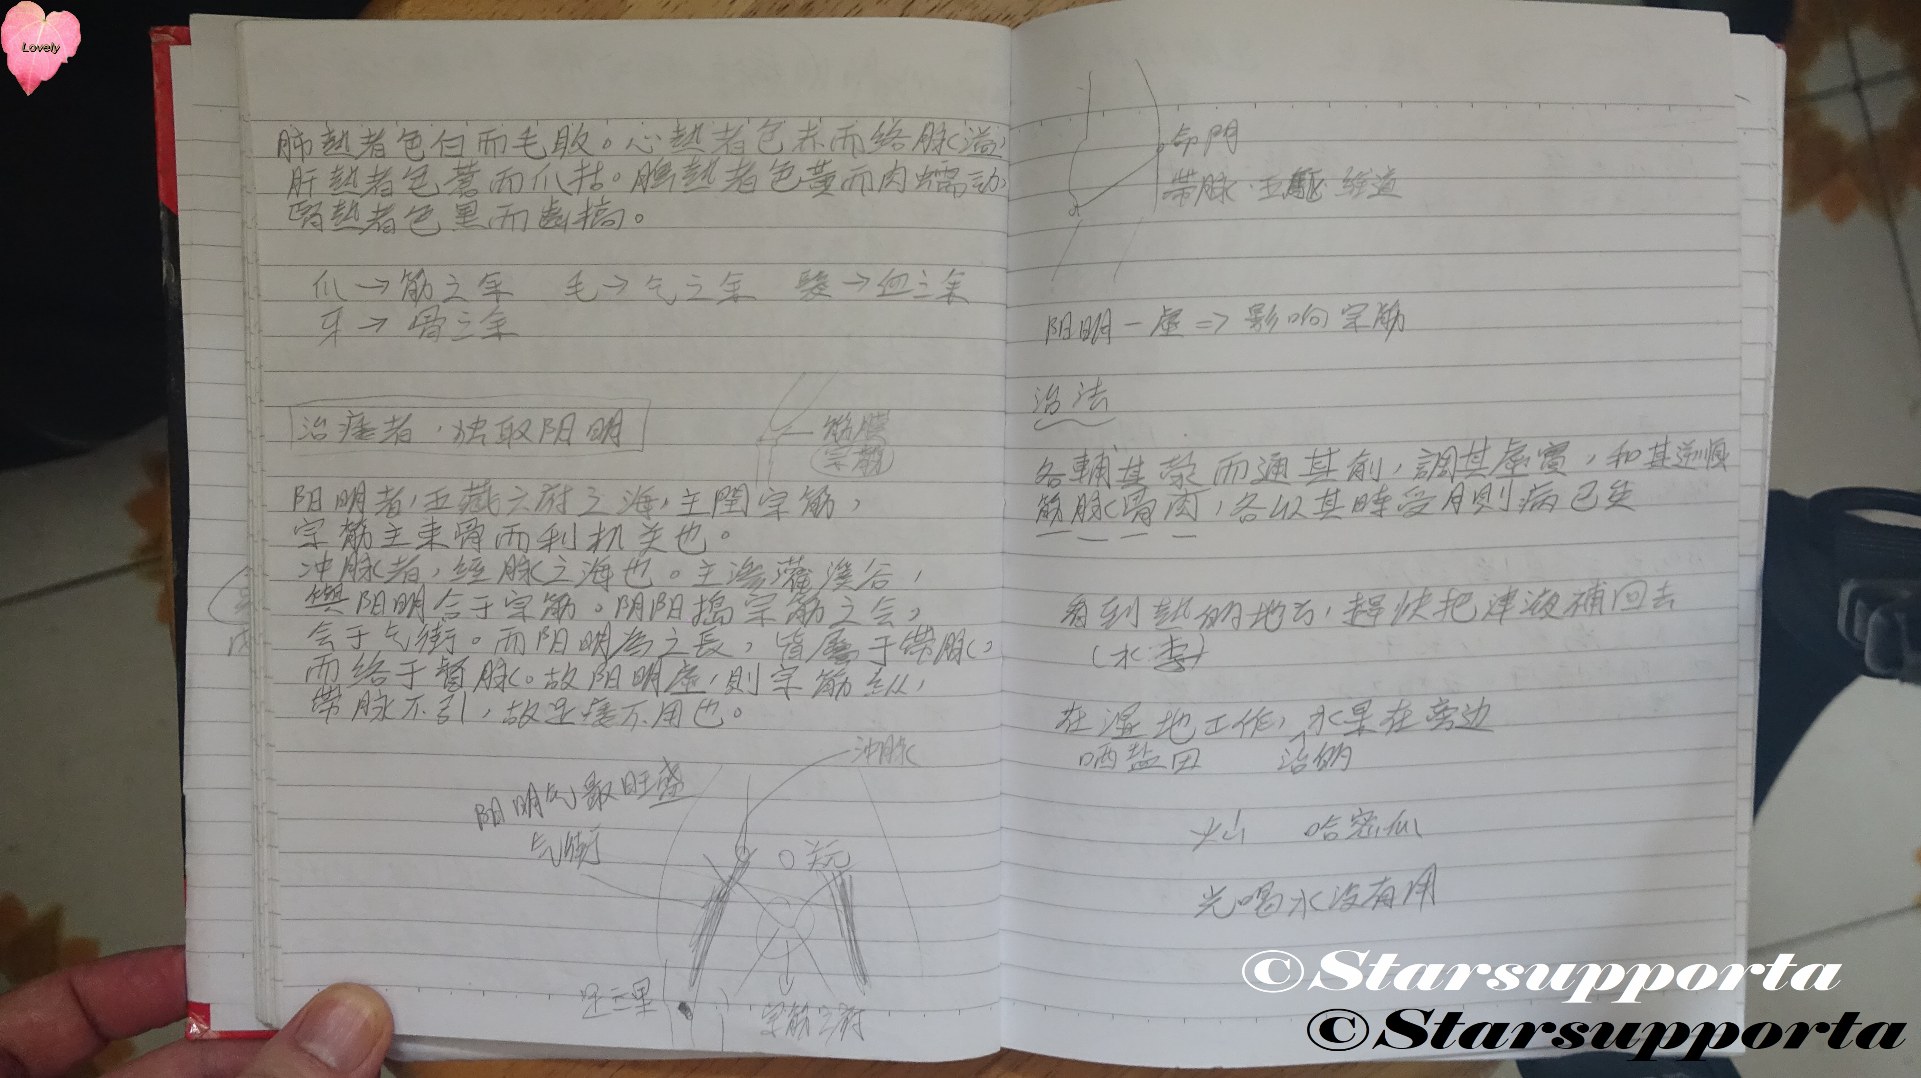 Lovely
肺熱者色白而毛敗。心熱者色赤而络脉溢,
肝熱者色蒼而爪枯。脾熱者色黃而肉蠕动,
腎熱者色黑而齒槁。
爪→筋之余 毛→气之余 髮→血之余
牙→骨之余
治痿者,独取阳明
筋膜
宗筋
阳明者,五藏六府之海,主閏宗筋,
宗筋主束骨而利机关也。
冲脉者,經脉之海也。主滲灌溪谷,
與阳明合于宗筋。阴阳揔宗筋之会,
会于气街。而阳明為之長,皆屬于帶脉,
而络于督脉。故阳明虛,則宗筋纵,
帶脉不引,故足痿不用也。
冲脉
阳明气最旺盛
气街
关元
足三里
宗筋之府
命門
帶脉·五樞·維道
阳明一虛=>影响宗筋
治法
各輔其荥而通其俞,調其虛實,和其逆順
筋脉骨肉,各以其時受月則病已矣
看到熱的地方,趕快把津液補回去
(水·枣)
在湿地工作,水果在旁边
晒盐田 治的
火山 哈密瓜
光喝水没有用
©Starsupporta
©Starsupporta